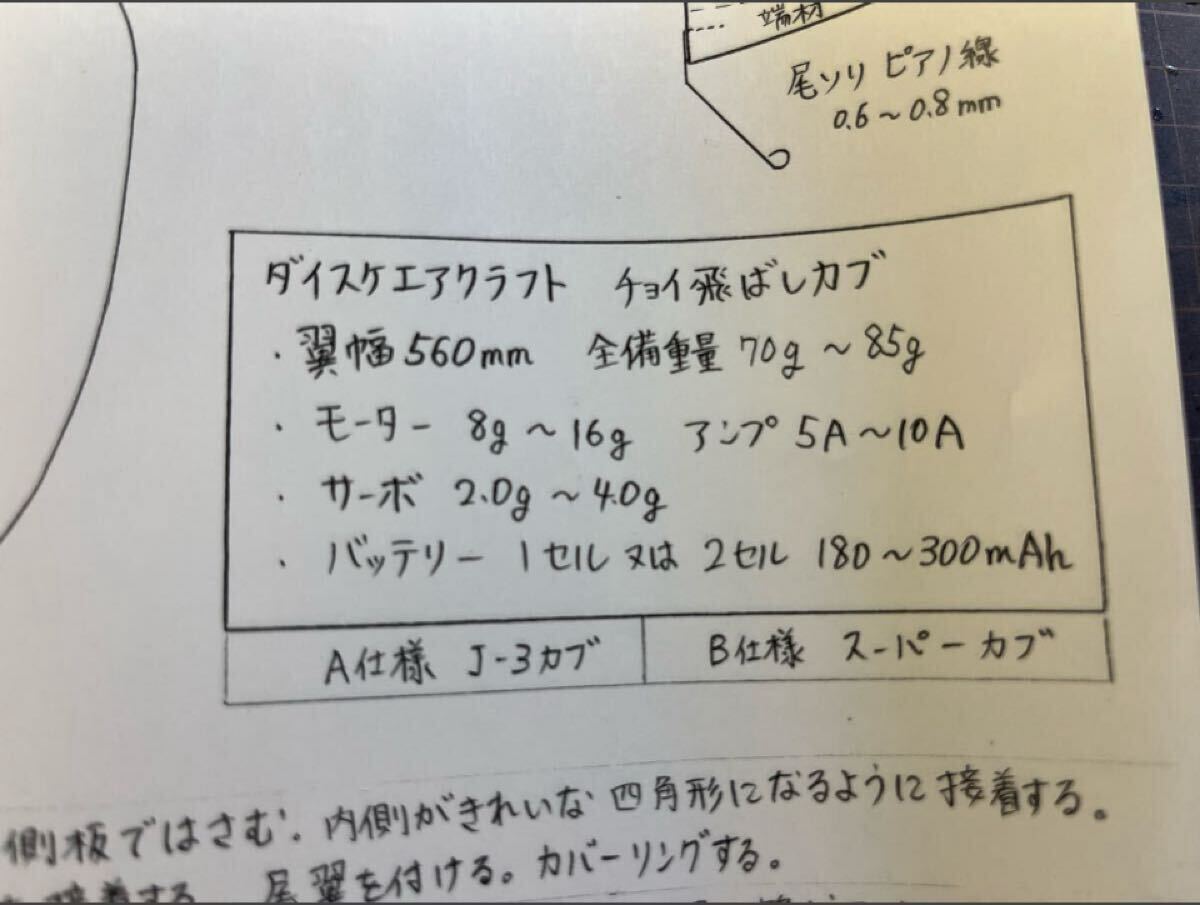 端材
尾ソリ ピアノ線
0.6～0.8mm
ダイスケエアクラフト チョイ飛ばしカブ
・翼幅560mm 全備重量 70g～85g
・モーター 8g～16g アンプ 5A～10A
・サーボ 2.0g～4.0g
・バッテリー 1セル又は2セル 180～300mAh
A仕様 J-3カブ
B仕様 スーパーカブ
側板ではさむ。内側がきれいな四角形になるように接着する。
接着する 尾翼を付ける。カバーリングする。